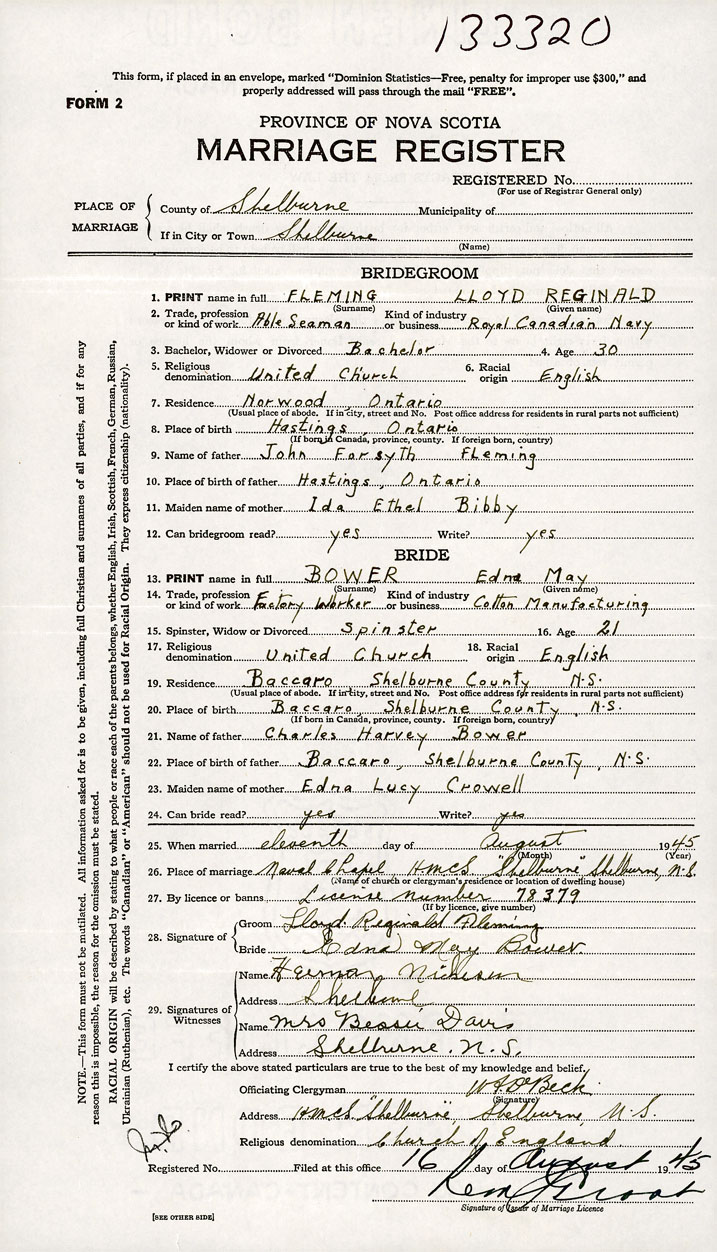 133320
This form, if placed in an envelope, marked "Dominion Statistics—Free, penalty for improper use $300," and
properly addressed will pass through the mail "FREE".
FORM 2
PROVINCE OF NOVA SCOTIA
MARRIAGE REGISTER
REGISTERED No.
(For use of Registrar General only)
PLACE OF MARRIAGE
County of Shelburne Municipality of
If in City or Town Shelburne
(Name)
BRIDEGROOM
1. PRINT name in full FLEMING LLOYD REGINALD
(Surname) (Given name)
2. Trade, profession or kind of work Able Seaman Kind of industry or business Royal Canadian Navy
3. Bachelor, Widower or Divorced Bachelor 4. Age 30
5. Religious denomination United Church 6. Racial origin English
7. Residence Norwood, Ontario
(Usual place of abode. If in city, street and No. Post office address for residents in rural parts not sufficient)
8. Place of birth Hastings, Ontario
(If born in Canada, province, county. If foreign born, country)
9. Name of father John Forsyth Fleming
10. Place of birth of father Hastings, Ontario
11. Maiden name of mother Ida Ethel Bibby
12. Can bridegroom read? yes Write? yes
BRIDE
13. PRINT name in full BOWER Edna May
(Surname) (Given name)
14. Trade, profession or kind of work Factory Worker Kind of industry or business Cotton Manufacturing
15. Spinster, Widow or Divorced Spinster 16. Age 21
17. Religious denomination United Church 18. Racial origin English
19. Residence Baccaro, Shelburne County N.S.
(Usual place of abode. If in city, street and No. Post office address for residents in rural parts not sufficient)
20. Place of birth Baccaro, Shelburne County, N.S.
(If born in Canada, province, county. If foreign born, country)
21. Name of father Charles Harvey Bower
22. Place of birth of father Baccaro, Shelburne County, N.S.
23. Maiden name of mother Edna Lucy Crowell
24. Can bride read? yes Write? yes
25. When married eleventh day of August 1945
(Month) (Year)
26. Place of marriage Naval Chapel, HMCS "Shelburne" Shelburne, N.S.
(Name of church or clergyman's residence or location of dwelling house)
27. By licence or banns License number 78379
(If by licence, give number)
28. Signature of
Groom Lloyd Reginald Fleming
Bride Edna May Bower.
29. Signatures of Witnesses
Name Herman
Address Shelburne
Name Mrs Bessie Davis
Address Shelburne. N.S.
I certify the above stated particulars are true to the best of my knowledge and belief.
Officiating Clergyman Beck
(Signature)
Address HMCS "Shelburne" Shelburne, N.S.
Religious denomination Church of England
Registered No. Filed at this office 16 day of August 1945
Signature of Issuer of Marriage Licence
[SEE OTHER SIDE]
NOTE.—This form must not be mutilated. All information asked for is to be given, including full Christian and surnames of all parties, and if for any
reason this is impossible, the reason for the omission must be stated.
RACIAL ORIGIN will be described by stating to what people or race each of the parents belongs, whether English, Irish, Scottish, French, German, Russian,
Ukrainian (Ruthenian), etc. The words "Canadian" or "American" should not be used for Racial Origin. They express citizenship (nationality).